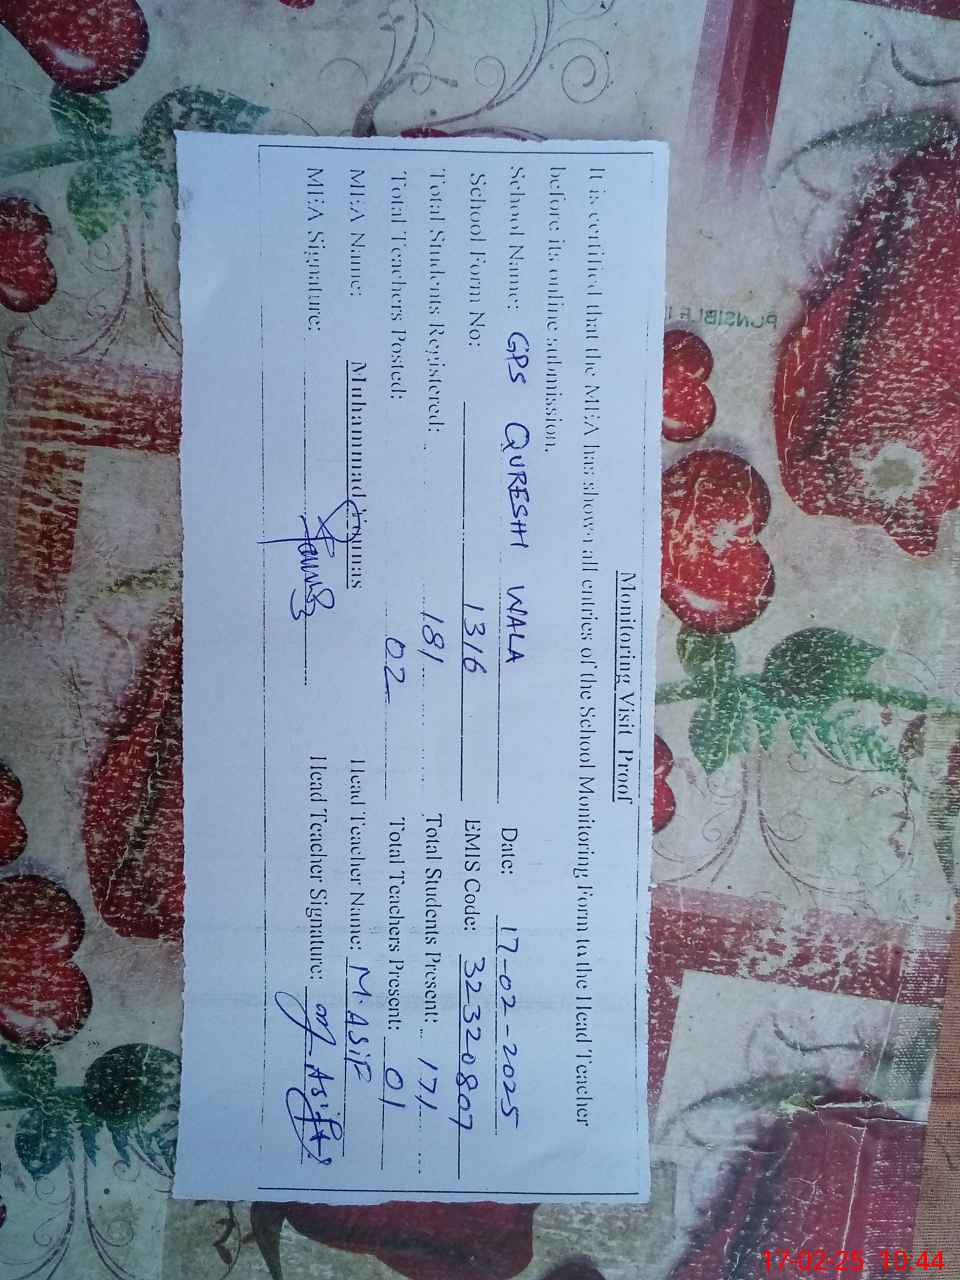 Monitoring Visit Proof
It is certified that the MEA has shown all entries of the School Monitoring Form to the Head Teacher
before its online submission.
School Name: GPS QURESHI WALA Date: 17-02-2025
School Form No: 1316 EMIS Code: 32320807
Total Students Registered: 181 Total Students Present: 171
Total Teachers Posted: 02 Total Teachers Present: 01
MEA Name: Muhammad Younas Head Teacher Name: M. ASIF
MEA Signature: Head Teacher Signature: Asif
17-02-25 10:44